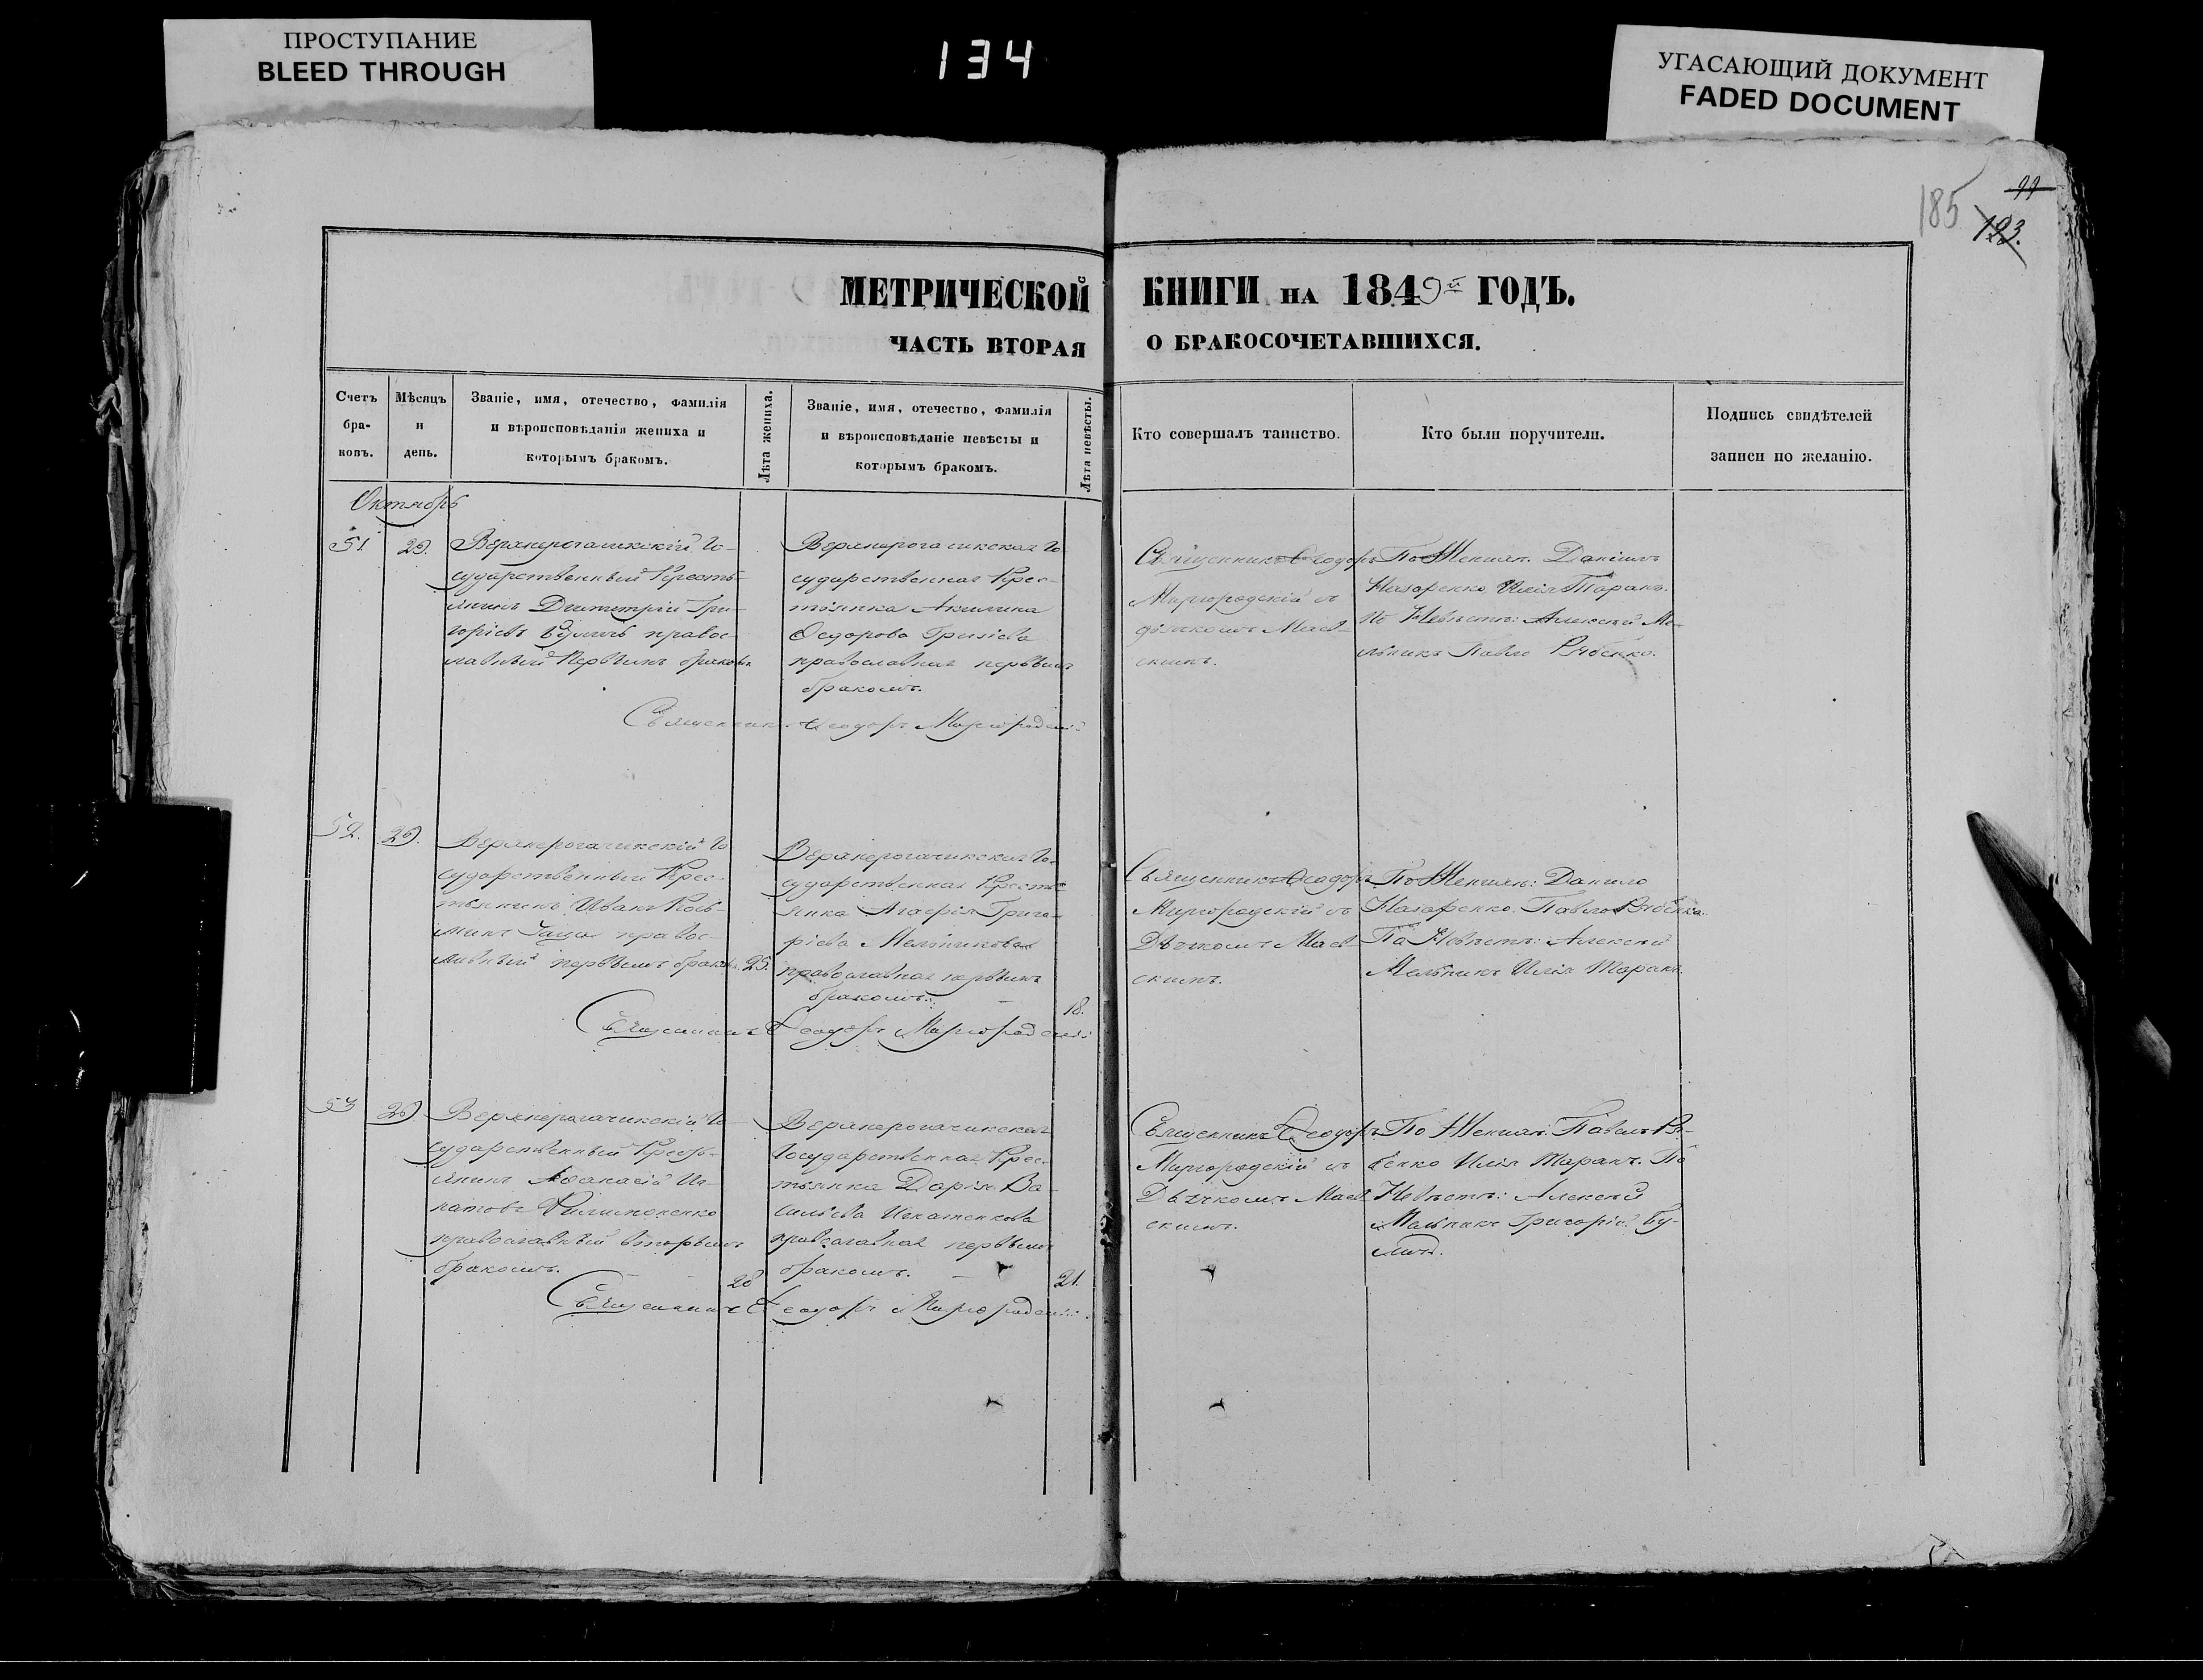 ПРОСТУПАНИЕ
BLEED THROUGH
134
УГАСАЮЩИЙ ДОКУМЕНТ
FADED DOCUMENT
185
123.
МЕТРИЧЕСКОЙ КНИГИ НА 1849й ГОДЪ.
ЧАСТЬ ВТОРАЯ О БРАКОСОЧЕТАВШИХСЯ.
Счетъ
бра-
ковъ.
Мѣсяцъ
и
день.
Званіе, имя, отечество, фамилія
и вѣроисповѣданія жениха и
которымъ бракомъ.
Лѣта жениха.
Званіе, имя, отечество, фамилія
и вѣроисповѣданіе невѣсты и
которымъ бракомъ.
Лѣта невѣсты.
Кто совершалъ таинство.
Кто были поручители.
Подпись свидѣтелей
записи по желанію.
Октябрь
51.
Верхнерогачикскій Го-
сударственный Кресть-
янинъ Димитрій Гри-
горіевъ правос-
лавный Первымъ бракомъ
Верхнерогачикская Го
сударственная Крес-
тьянка Акилина
Федорова
православная первымъ
бракомъ.
Священникъ Феодоръ
Миргородскій съ
дьячкомъ Маев-
скимъ.
По Женихѣ: Даніилъ
Назаренко, Илія Таранъ.
По Невѣстѣ: Алексей Ме-
льникъ Павло Рябенко.
Священникъ Феодоръ Миргородскій
52.
Верхнерогачикскій Го
сударственный Крес-
тьянинъ Иванъ Косъ-
минъ правос-
лавный первымъ бракомъ. 25.
Верхнерогачикская Го-
сударственная Кресть-
янка Агафія Григо-
ріева Мельникова
православная первымъ
бракомъ. 18.
Священникъ Феодоръ
Миргородскій съ
Дьячкомъ Маев-
скимъ.
По Женихѣ: Данило
Назаренко. Павло Рябенко.
По Невѣстѣ: Алексей
Мельникъ Илія Таранъ.
Священникъ Феодоръ Миргородскій
53
Верхнерогачикскій Го-
сударственный Кресть-
янинъ Афанасій Иг-
натовъ Филипоненко
православный вторымъ
бракомъ. 28
Верхнерогачикская
Государственная Крес-
тьянка Дарія Ва-
сильева Игнатенкова
православная первымъ
бракомъ. 21.
Священникъ Феодоръ
Миргородскій съ
Дьячкомъ Маев-
скимъ.
По Женихѣ: Павелъ Ря-
бенко Илія Таранъ. По
Невѣстѣ: Алексей
Мельникъ Григорій Бу-
Священникъ Феодоръ Миргородскій